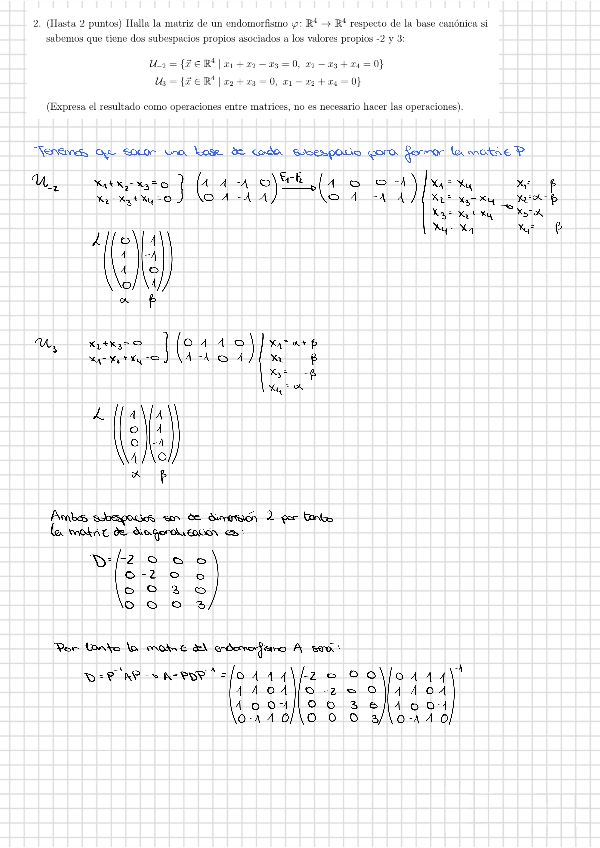 2. (Hasta 2 puntos) Halla la matriz de un endomorfismo φ: ℝ⁴ → ℝ⁴ respecto de la base canónica si
sabemos que tiene dos subespacios propios asociados a los valores propios -2 y 3:
𝒰₋₂ = {x⃗ ∈ ℝ⁴ | x₁ + x₂ − x₃ = 0, x₂ − x₃ + x₄ = 0}
𝒰₃ = {x⃗ ∈ ℝ⁴ | x₂ + x₃ = 0, x₁ − x₂ + x₄ = 0}
(Expresa el resultado como operaciones entre matrices, no es necesario hacer las operaciones).
Tenemos que sacar una base de cada subespacio para formar la matriz P
𝒰₋₂ x₁+x₂-x₃=0 } (1 1 -1 0) F₁-F₂ → (1 0 0 -1) | x₁= x₄ x₁= β
x₂-x₃+x₄=0 (0 1 -1 1) (0 1 -1 1) | x₂= x₃-x₄ → x₂=α-β
x₃= x₂+x₄ x₃=α
x₄= x₁ x₄= β
ℒ ((0) (1))
1 -1
1 0
0 1
α β
𝒰₃ x₂+x₃=0 } (0 1 1 0) | x₁= α+β
x₁-x₂+x₄=0 (1 -1 0 1) | x₂ β
x₃= -β
x₄= α
ℒ ((1) (1))
0 1
0 -1
1 0
α β
Ambos subespacios son de dimensión 2 por tanto
la matriz de diagonalización es:
D= (-2 0 0 0)
0 -2 0 0
0 0 3 0
0 0 0 3
Por tanto la matriz del endomorfismo A será:
D=P⁻¹AP → A=PDP⁻¹ = (0 1 1 1) (-2 0 0 0) (0 1 1 1)⁻¹
1 1 0 1 0 -2 0 0 1 1 0 1
1 0 0 -1 0 0 3 0 1 0 0 -1
0 -1 1 0 0 0 0 3 0 -1 1 0